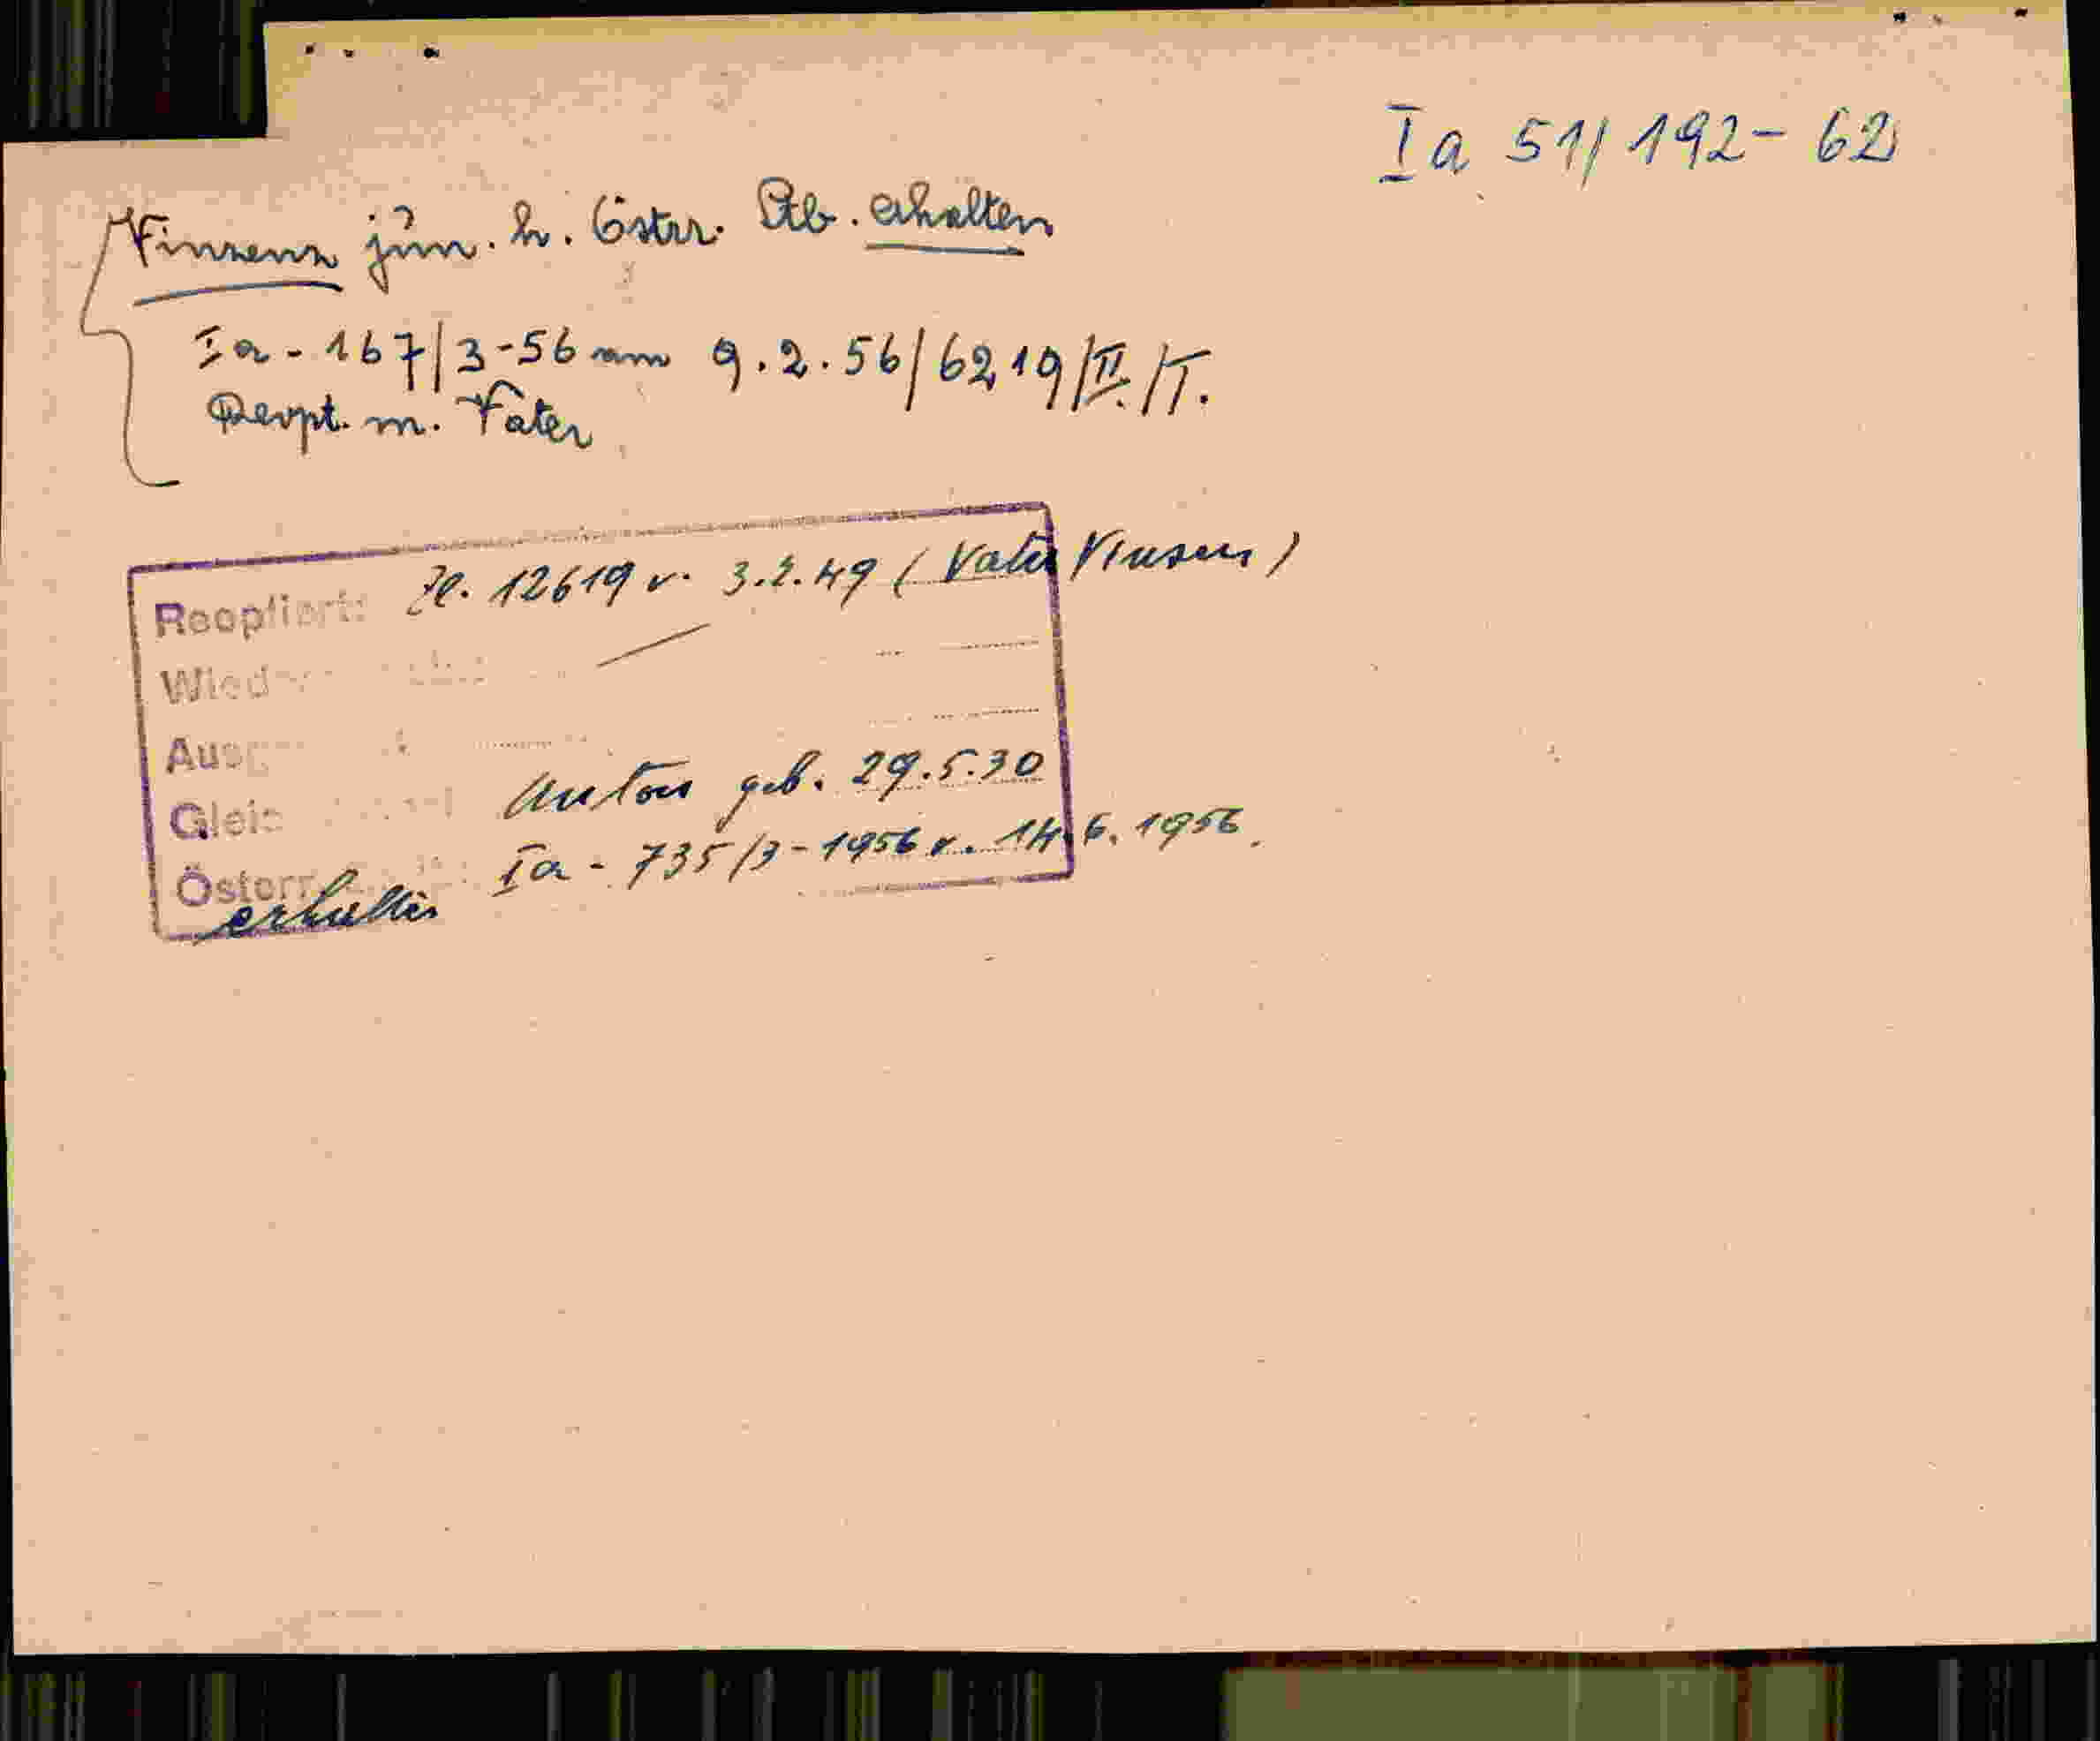 Ia 51/192-62
Vinzenz jun. h. Österr. Stb. erhalten
Ia - 167/3-56 am 9.2.56/6219/II./I.
Reopt. m. Vater
Reoptiert: Zl. 12619 v. 3.2.49 (Vater Vinzenz)
Anton geb. 29.5.30
Ia - 735/3-1956 v. 14.6.1956.
Österr.
erhalten